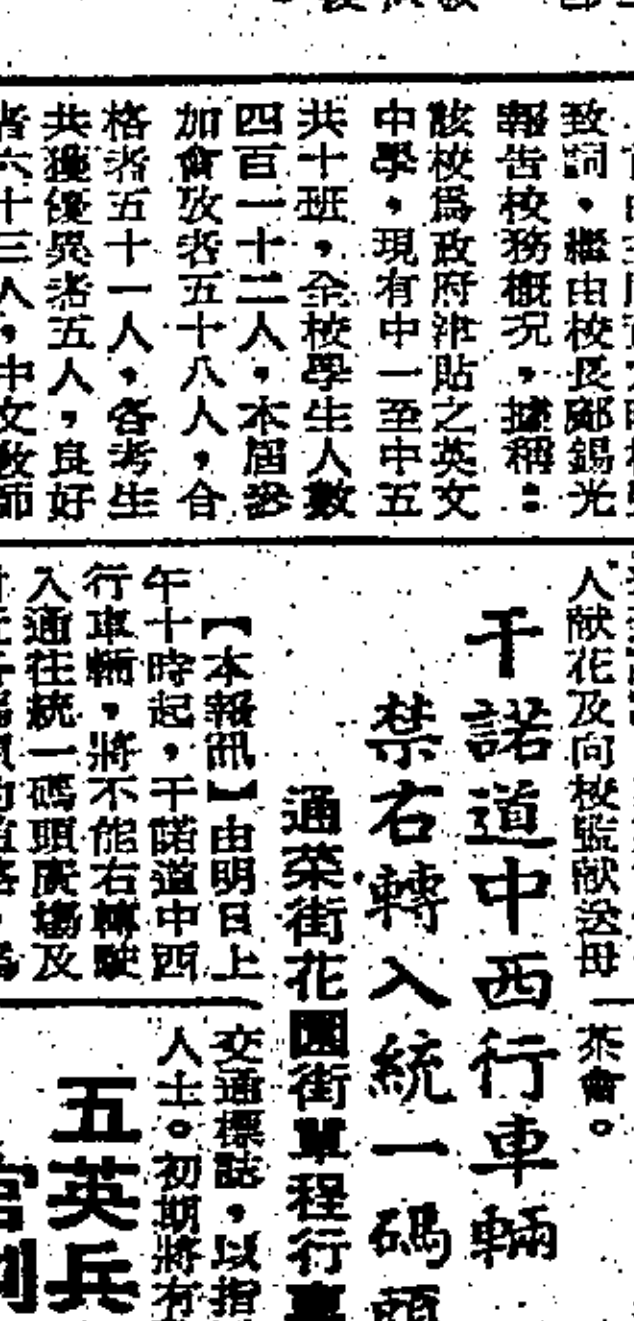 致詞，繼由校長鄺錫光
報告校務概况，據稱：
該校爲政府津貼之英文
中學，現有中一至中五
共十班，全校學生人數
四百一十二人，本屆參
加會攷者五十八人，合
格者五十一人，各考生
共獲優異者五人，良好
者六十三人，中文教師
人献花及向校監献送母
茶會。
干諾道中西行車輛
禁右轉入統一碼頭
通菜街花園街單程行車
【本報訊】由明日上
午十時起，干諾道中西
行車輛，將不能右轉駛
入通往統一碼頭廣塲及
交通標誌，以指
人士。初期將有
五英兵